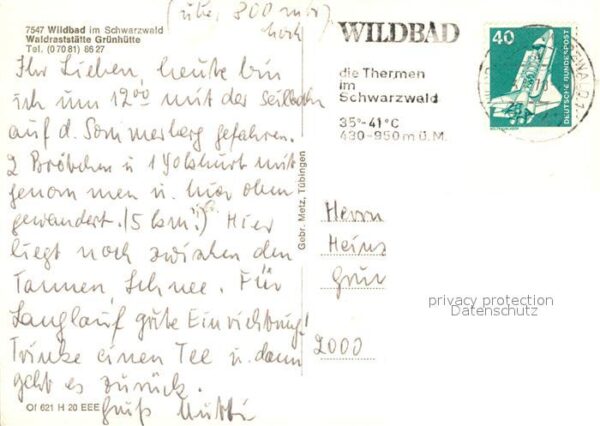 (über 300 mtr.
hoch)
7547 Wildbad im Schwarzwald
Waldraststätte Grünhütte
Tel. (0 70 81) 86 27
Ihr Lieben, heute bin
ich um 12⁰⁰ mit der Seilbahn
auf d. Sommerberg gefahren.
2 Brötchen u 1 Yoghurt mit
genommen u. hier oben
gewandert. (5 km!) Hier
liegt noch zwischen den
Tannen Schnee. Für
Langlauf gute Einrichtung!
Trinke einen Tee u. dann
geht es zurück.
Gruß Mutti
Of 621 H 20 EEE
Gebr. Metz, Tübingen
WILDBAD
die Thermen
im
Schwarzwald
35°-41°C
430-950 m ü. M.
40
DEUTSCHE BUNDESPOST
Herrn
Heinz
2000
privacy protection
Datenschutz